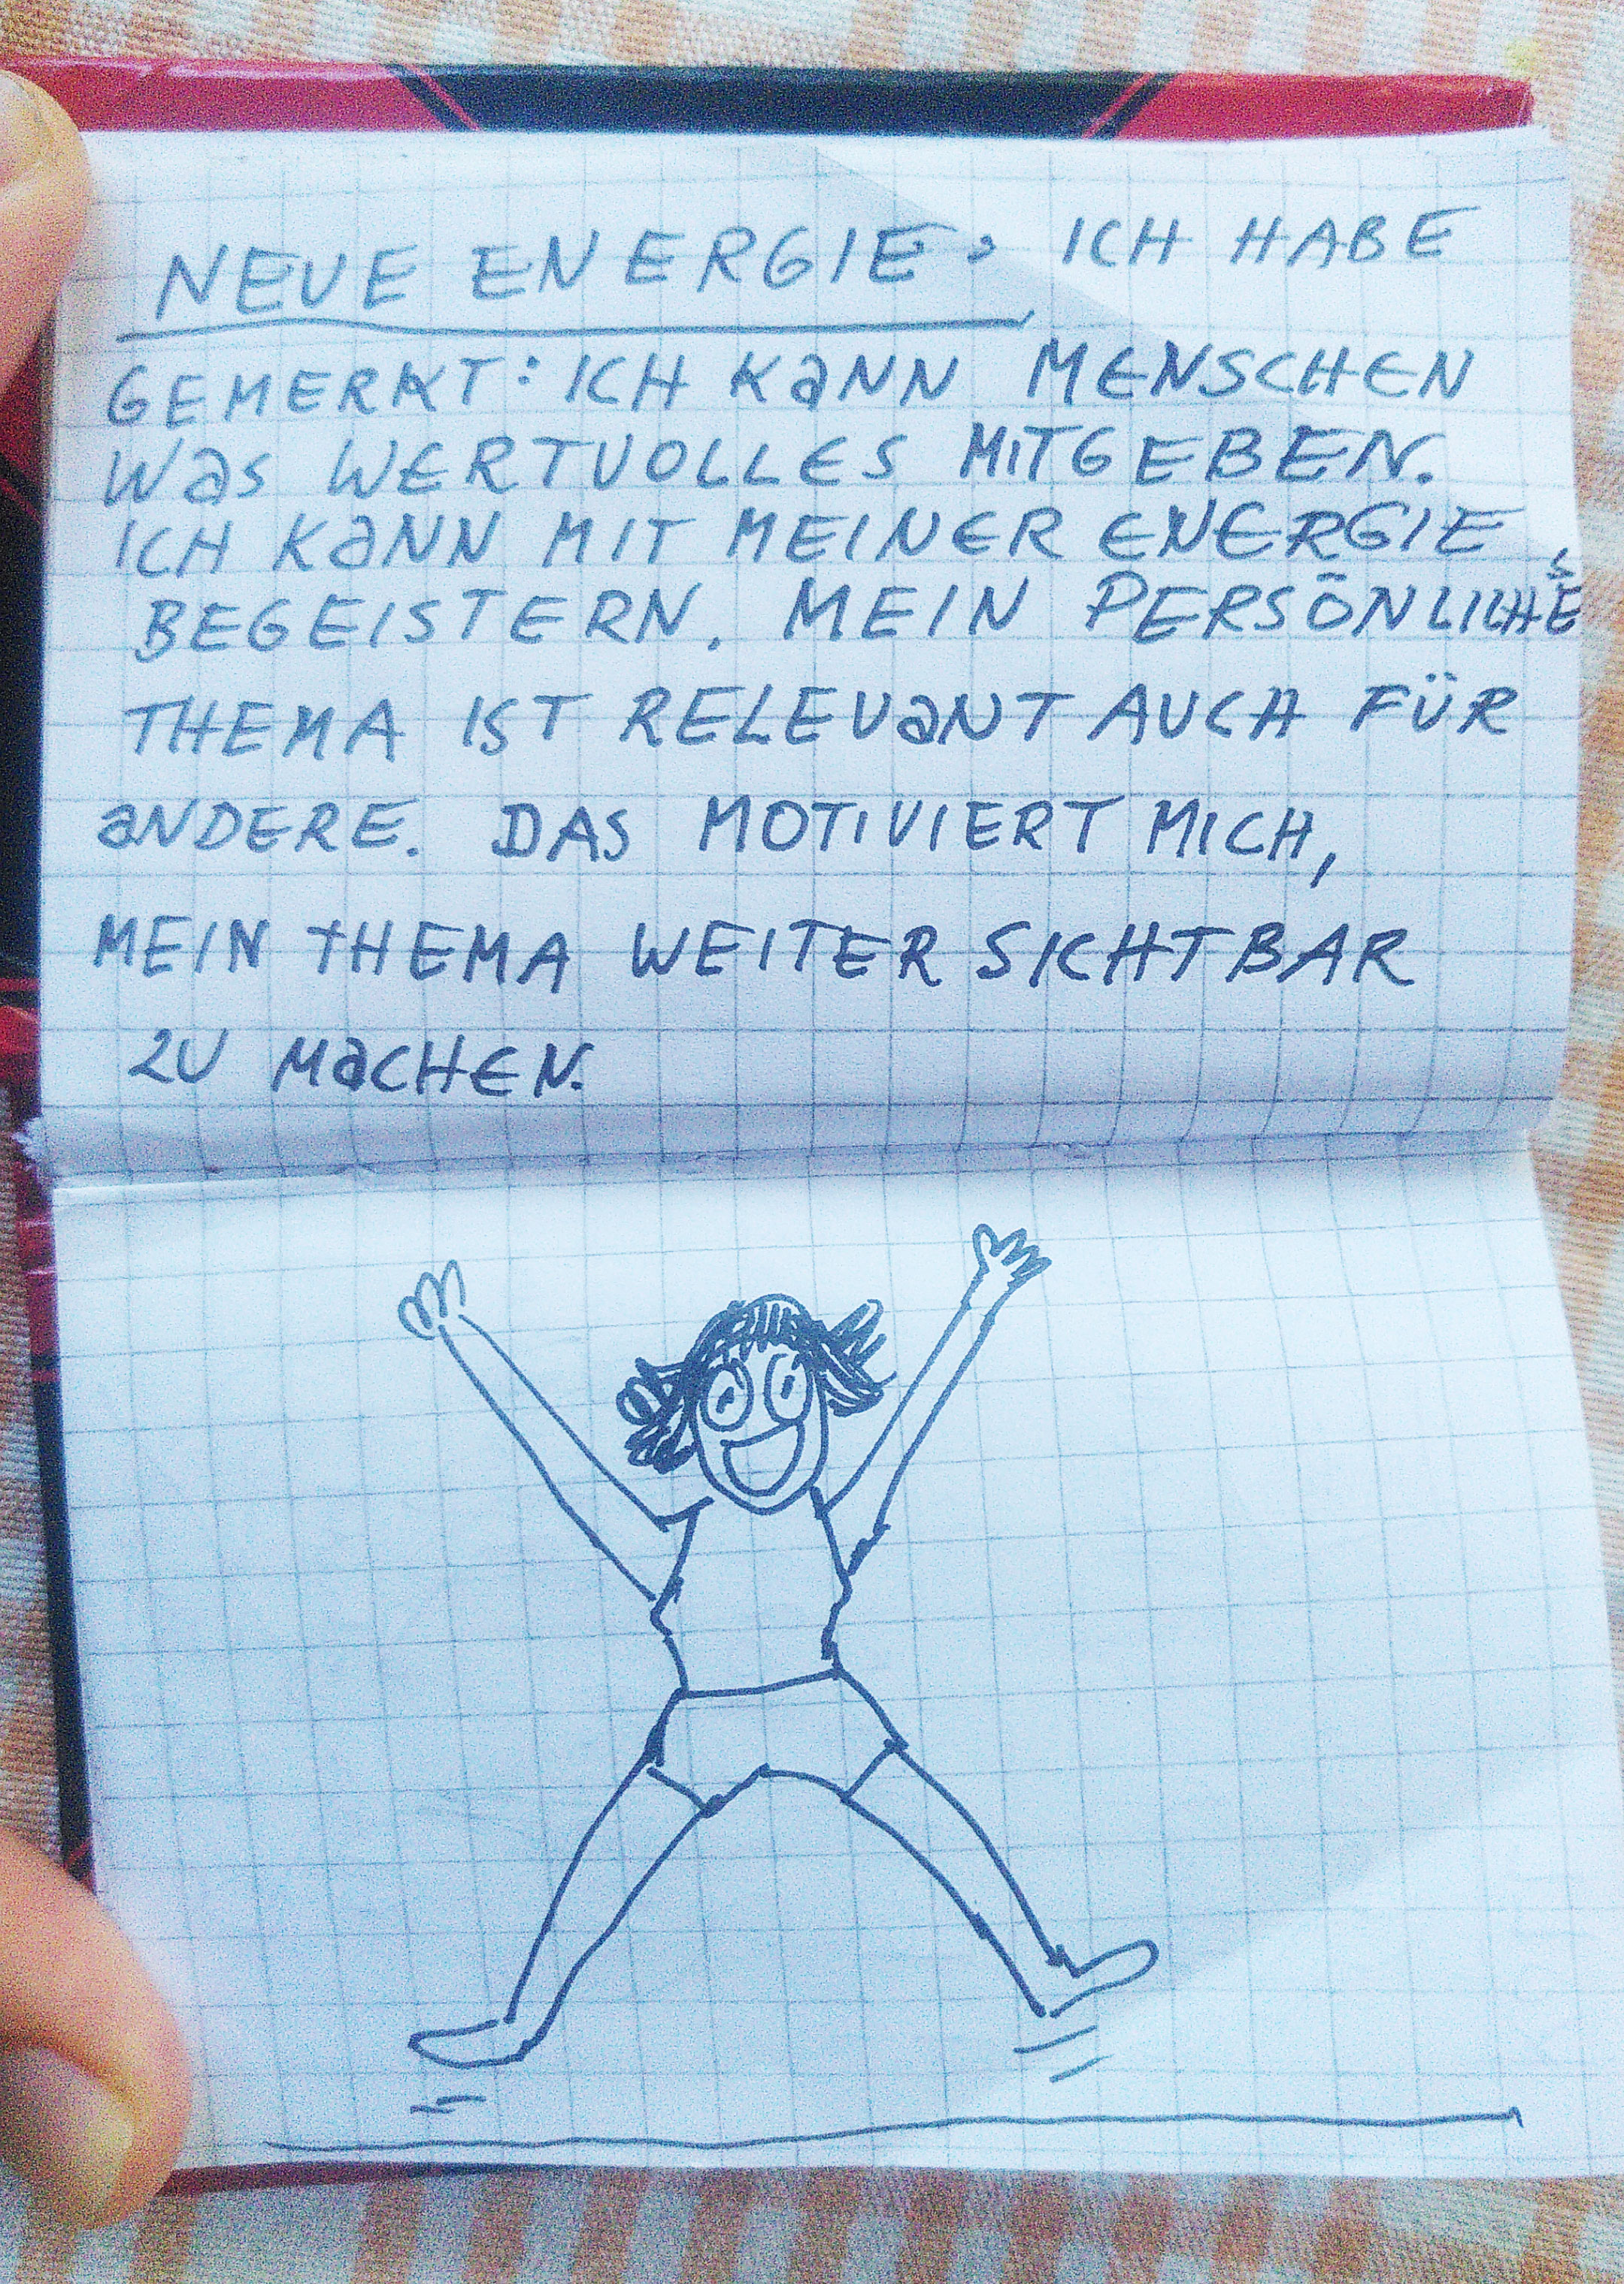 NEUE ENERGIE: ICH HABE
GEMERKT: ICH KaNN MENSCHEN
WaS WERTVOLLES MITGEBEN.
ICH KaNN MIT MEINER ENERGIE
BEGEISTERN. MEIN PERSÖNLICHES
THEMA IST RELEVaNT AUCH FÜR
aNDERE. DAS MOTIVIERT MICH,
MEIN THEMA WEITER SICHTBAR
ZU MaCHEN.